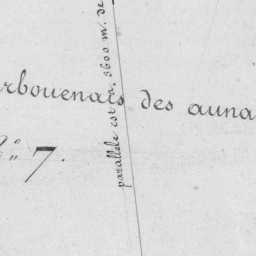 rbouenais des auna
N° 7.
parallele est n. 3600 m. de